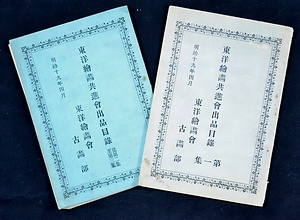 東洋繪畫共進會出品目録 第一集
明治十九年四月
東洋繪畫會
古畫部
東洋繪畫共進會出品目録
明治十九年四月
東洋繪畫會
古畫部